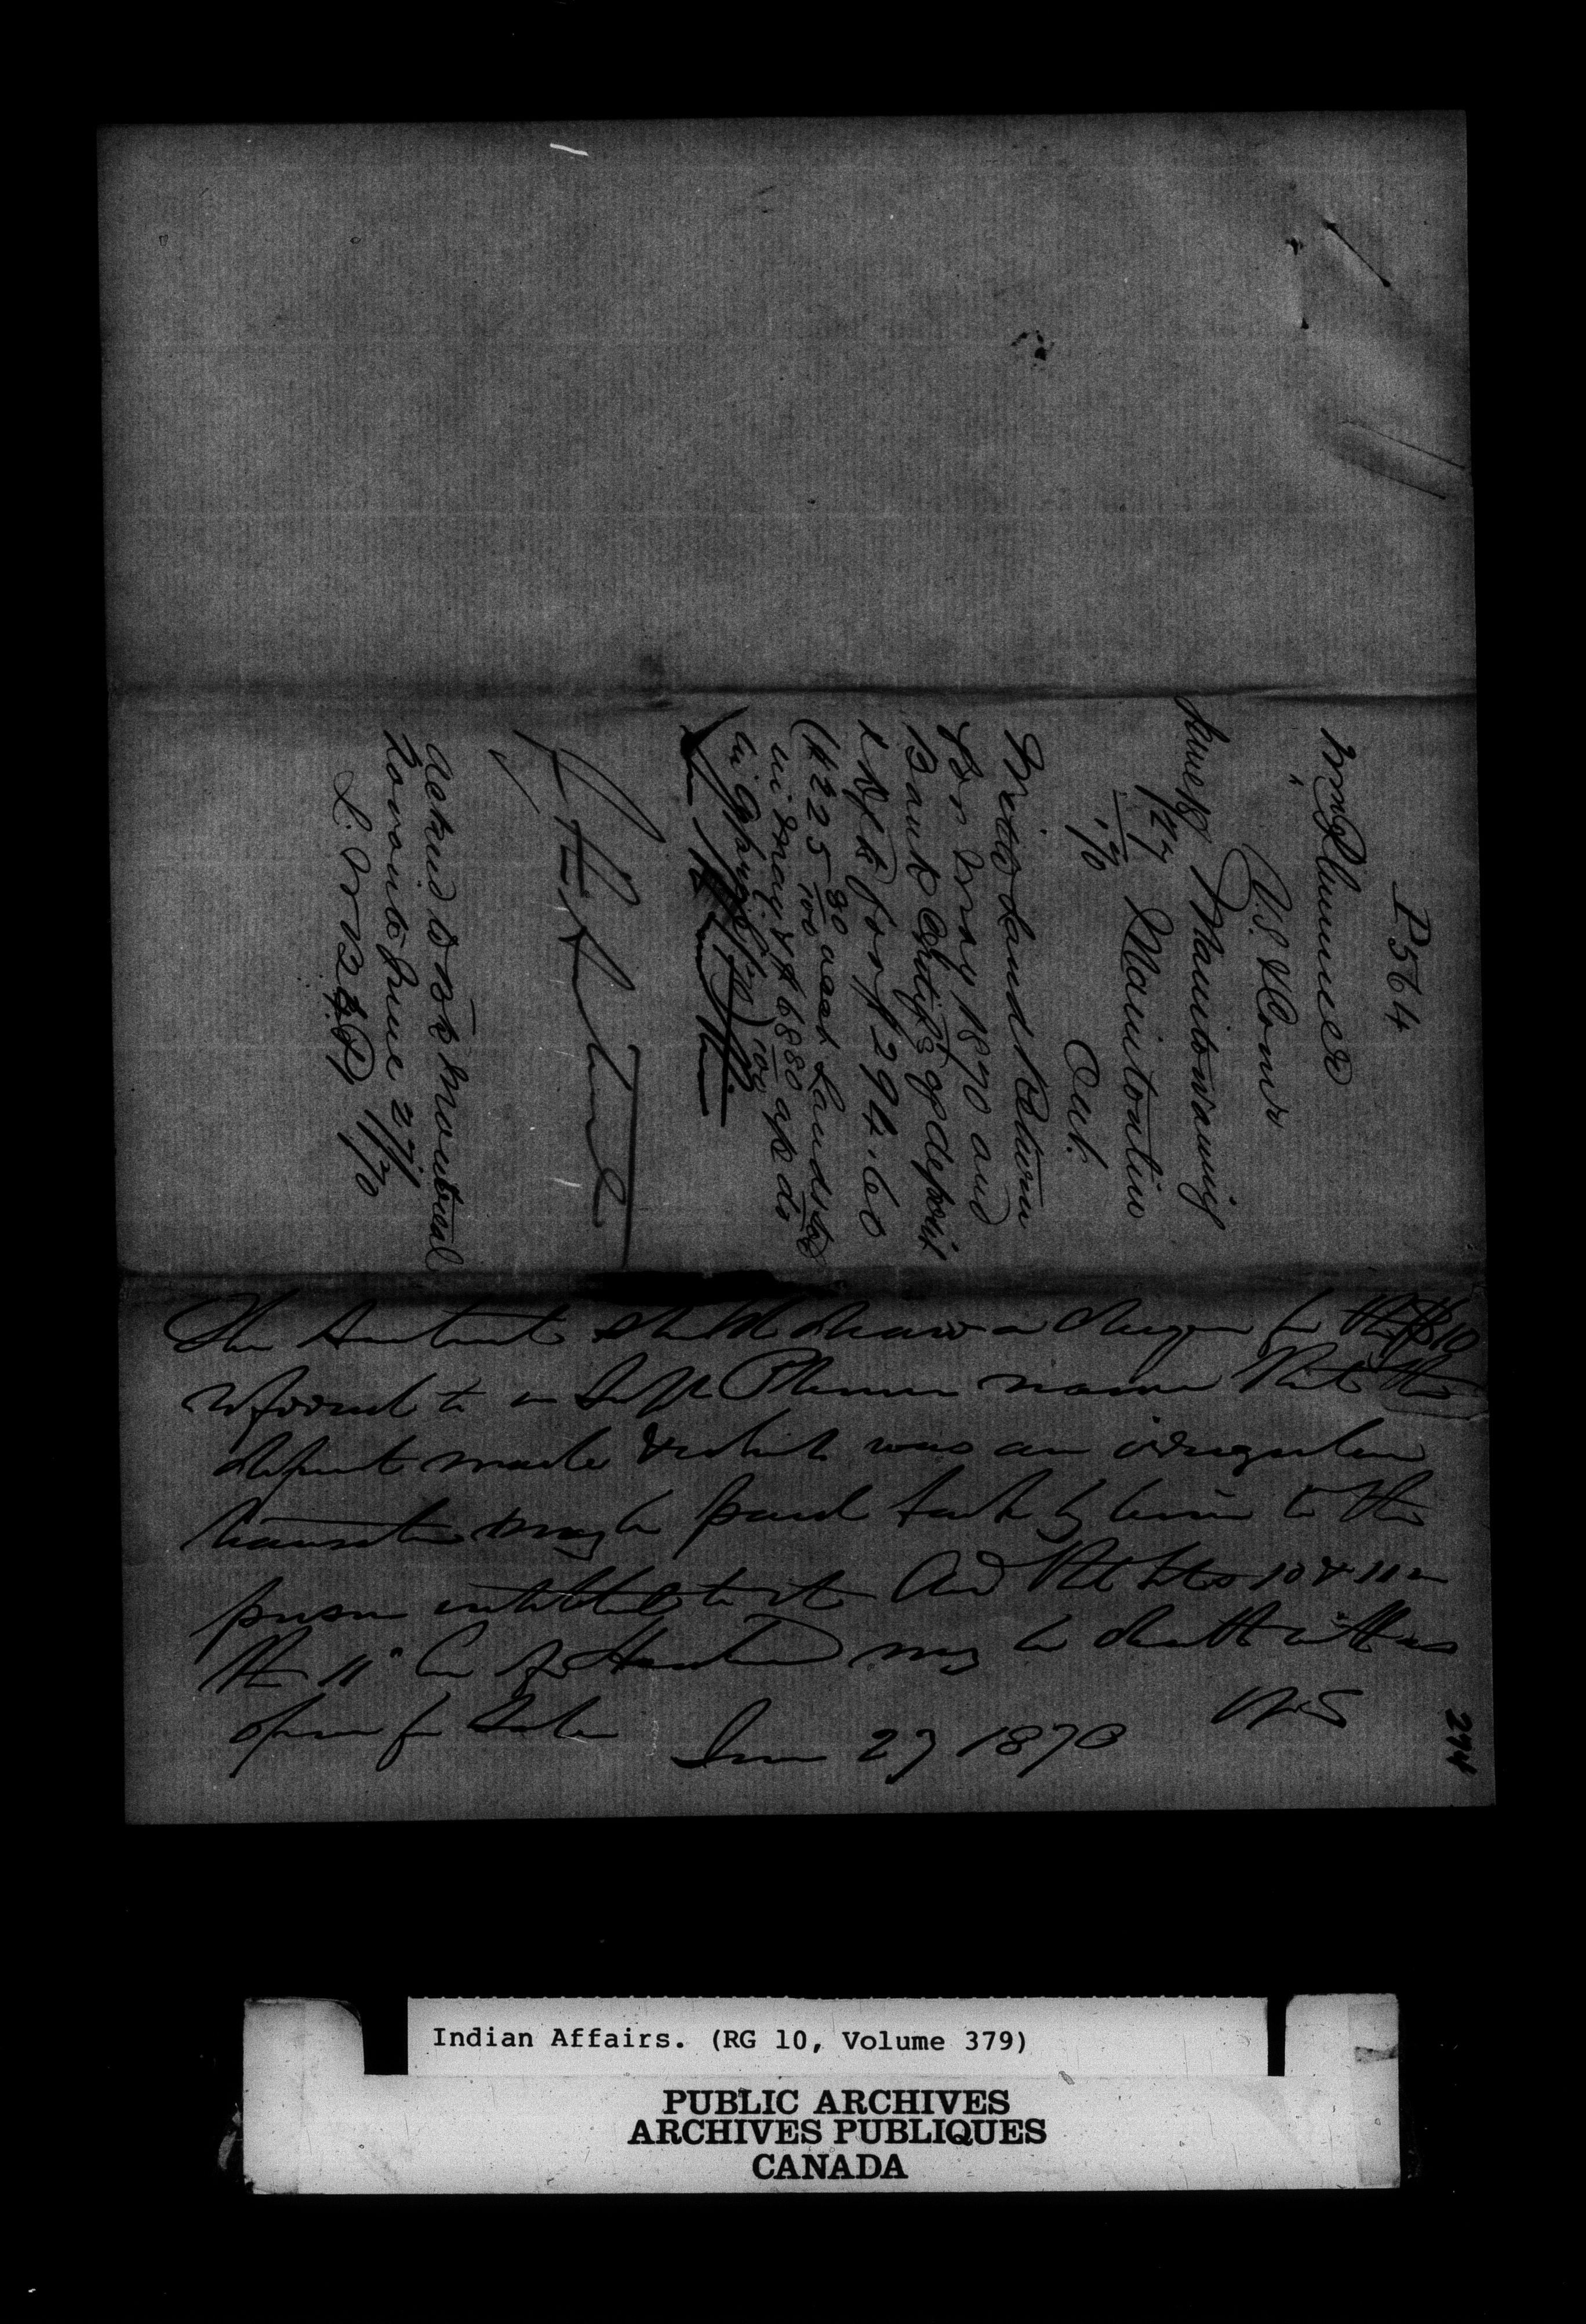 P564
Wm Plummer
V.S. & Comr
June 8 Manitowaning
1/27
1/70 Manitoulin
Ont.
With Land Return
for May 1870 and
Bank Certifs of deposit
for $294.60
($225 80/100 acct Lands sold
in May & $68 80/100 of do
in April
Ackd to Montreal
Toronto June 27/70
The Accountant should draw a cheque for the $10
referred to in Supt Plummer name that the
deposit made & which was an irregular
transaction may be paid back by him to the
person entitled to it And that Lots 10 & 11 in
the 11" Con of may be dealt with as
open for Sale
June 27 1870
274
Indian Affairs. (RG 10, Volume 379)
PUBLIC ARCHIVES
ARCHIVES PUBLIQUES
CANADA